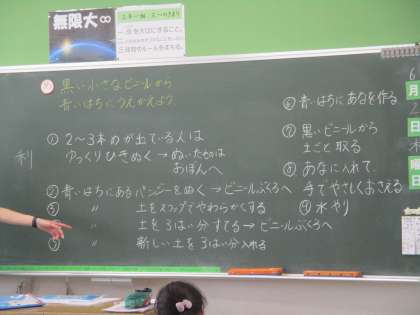 無限大∞
黒い小さなビニールから
青いはちにうえかえよう
① 2~3本めが出ている人は
ゆっくりひきぬく→ぬいたものは
おぼんへ
② 青いはちにあるパンジーをぬく→ビニールぶくろへ
③ 〃 土をスコップでやわらかくする
④ 〃 土を3ばい分すてる→ビニールぶくろへ
⑤ 〃 新しい土を3ばい分入れる
⑥ 青いはちにあなを作る
⑦ 黒いビニールから
土ごと取る
⑧ あなに入れて、
手でやさしくおさえる
⑨ 水やり
利
6
月
日
木
曜
日